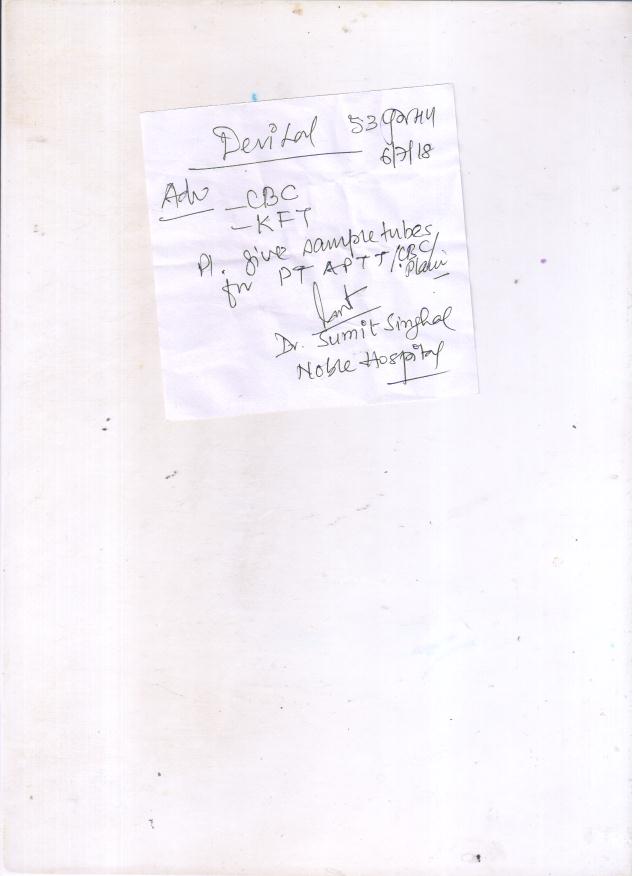 Devilal 53 yr/M
6/7/18
Adv - CBC
- KFT
Pl. give sample tubes
for PT APTT/CBC/
Plain
Dr. Sumit Singhal
Noble Hospital